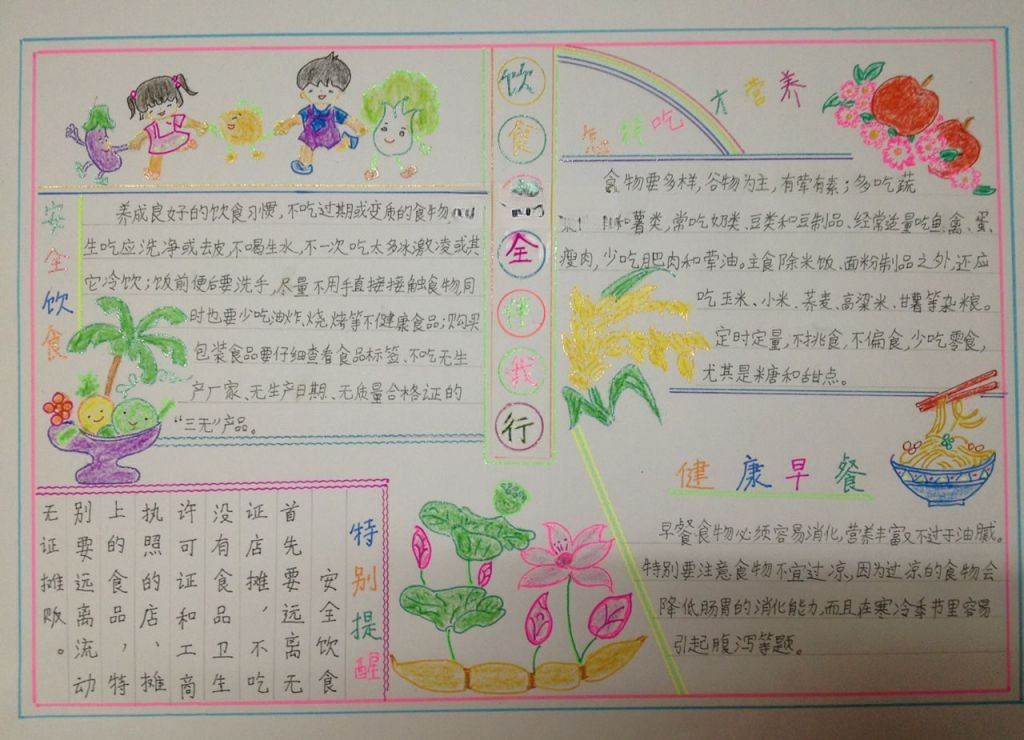 饮食安全伴我行
安全饮食
养成良好的饮食习惯,不吃过期或变质的食物
生吃应洗净或去皮,不喝生水,不一次吃太多冰激凌或其
它冷饮;饭前便后要洗手,尽量不用手直接接触食物,同
时也要少吃油炸、烧烤等不健康食品;购买
包装食品要仔细查看食品标签,不吃无生
产厂家、无生产日期、无质量合格证的
“三无”产品。
样吃才营养
食物要多样,谷物为主,有荤有素;多吃蔬
和薯类,常吃奶类、豆类和豆制品、经常适量吃鱼、禽、蛋、
瘦肉,少吃肥肉和荤油。主食除米饭、面粉制品之外,还应
吃玉米、小米、荞麦、高梁米、甘薯等杂粮。
定时定量,不挑食,不偏食,少吃零食,
尤其是米唐和甜点。
特别提醒
安全饮食
首先要远离无
证店摊,不吃
没有食品卫生
许可证和工商
执照的店、摊
上的食品,特
别要远离流动
无证摊贩。
健康早餐
早餐食物必须容易消化,营养丰富又不过于油腻。
特别要注意食物不宜过凉,因为过凉的食物会
降低肠胃的消化能力,而且在寒冷季节里容易
引起腹泻等题。